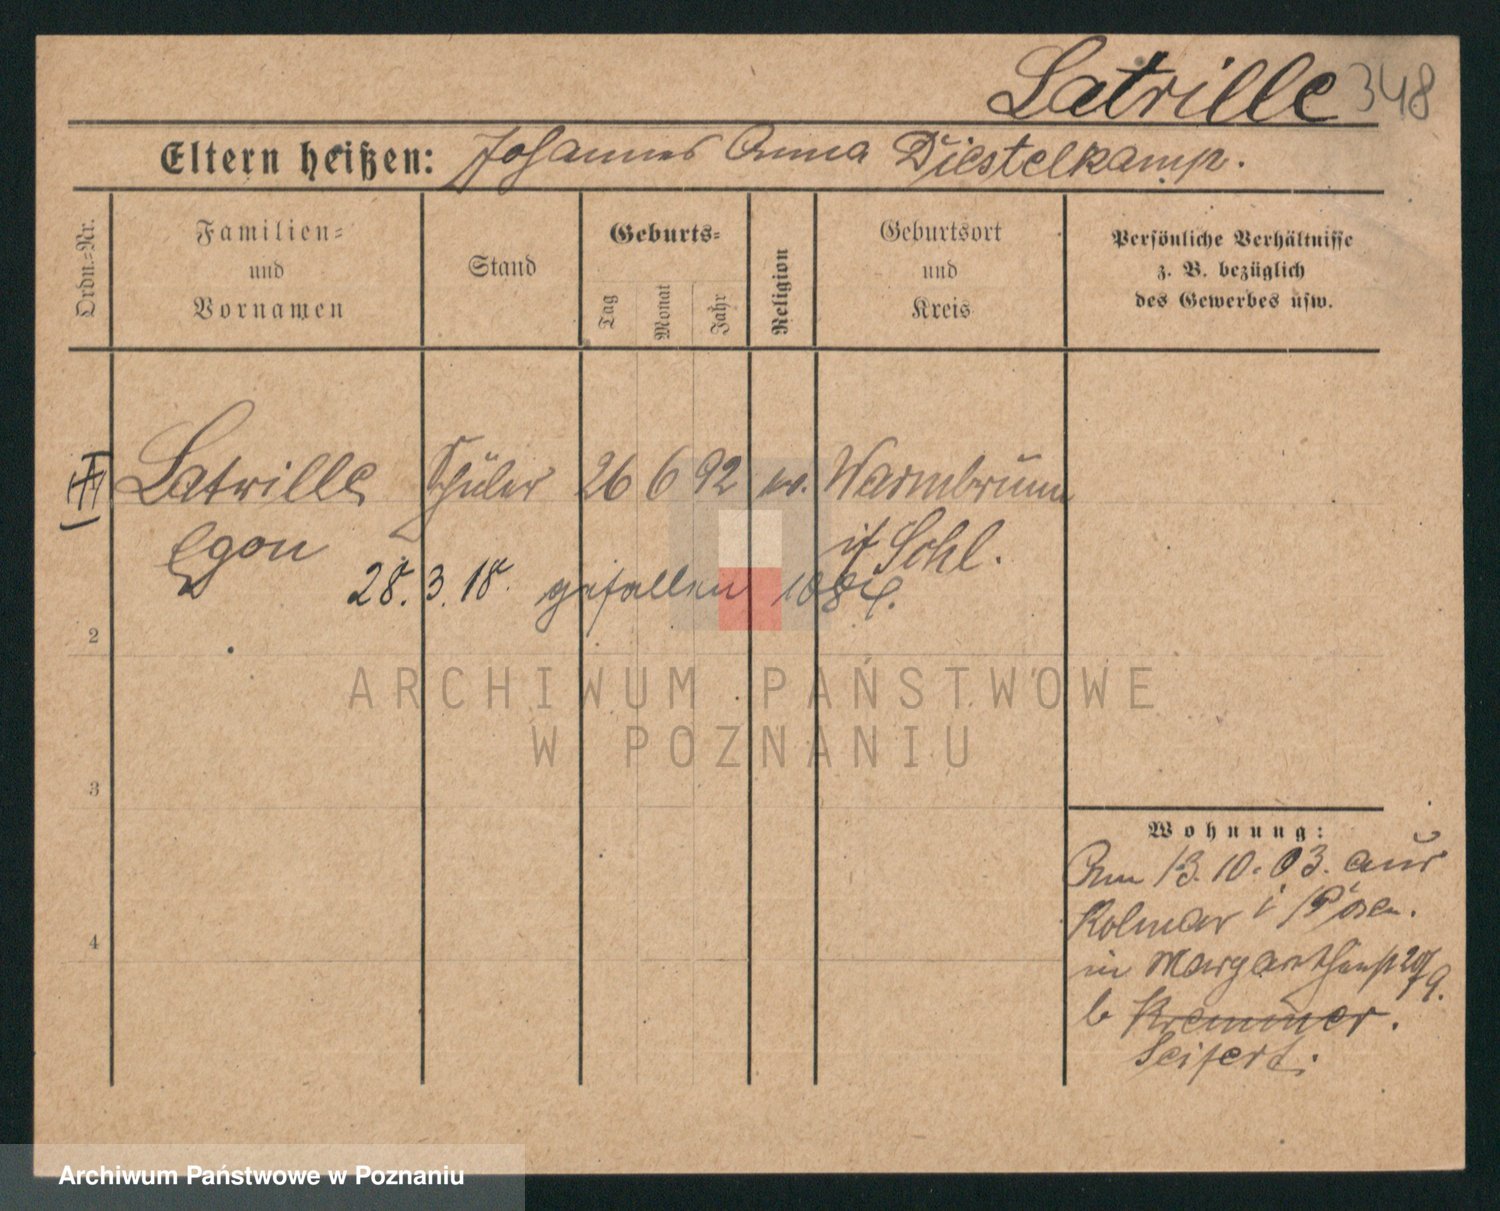 Latrille 348
Eltern heißen: Johannes Anna Diestelkamp.
Ordn.-Nr.
Familien-
und
Vornamen
Stand
Geburts-
Tag
Monat
Jahr
Religion
Geburtsort
und
Kreis
Persönliche Verhältnisse
z. B. bezüglich
des Gewerbes usw.
Latrille Schüler 26 6 92 ev. Warmbrunn
Egon
i/ Schl.
28.3.18. gefallen
2
3
4
ARCHIWUM PAŃSTWOWE
W POZNANIU
Wohnung:
Am 13.10.03. aus
Kolmar i/Posen.
in
b Kremmer.
Seifert.
Archiwum Państwowe w Poznaniu